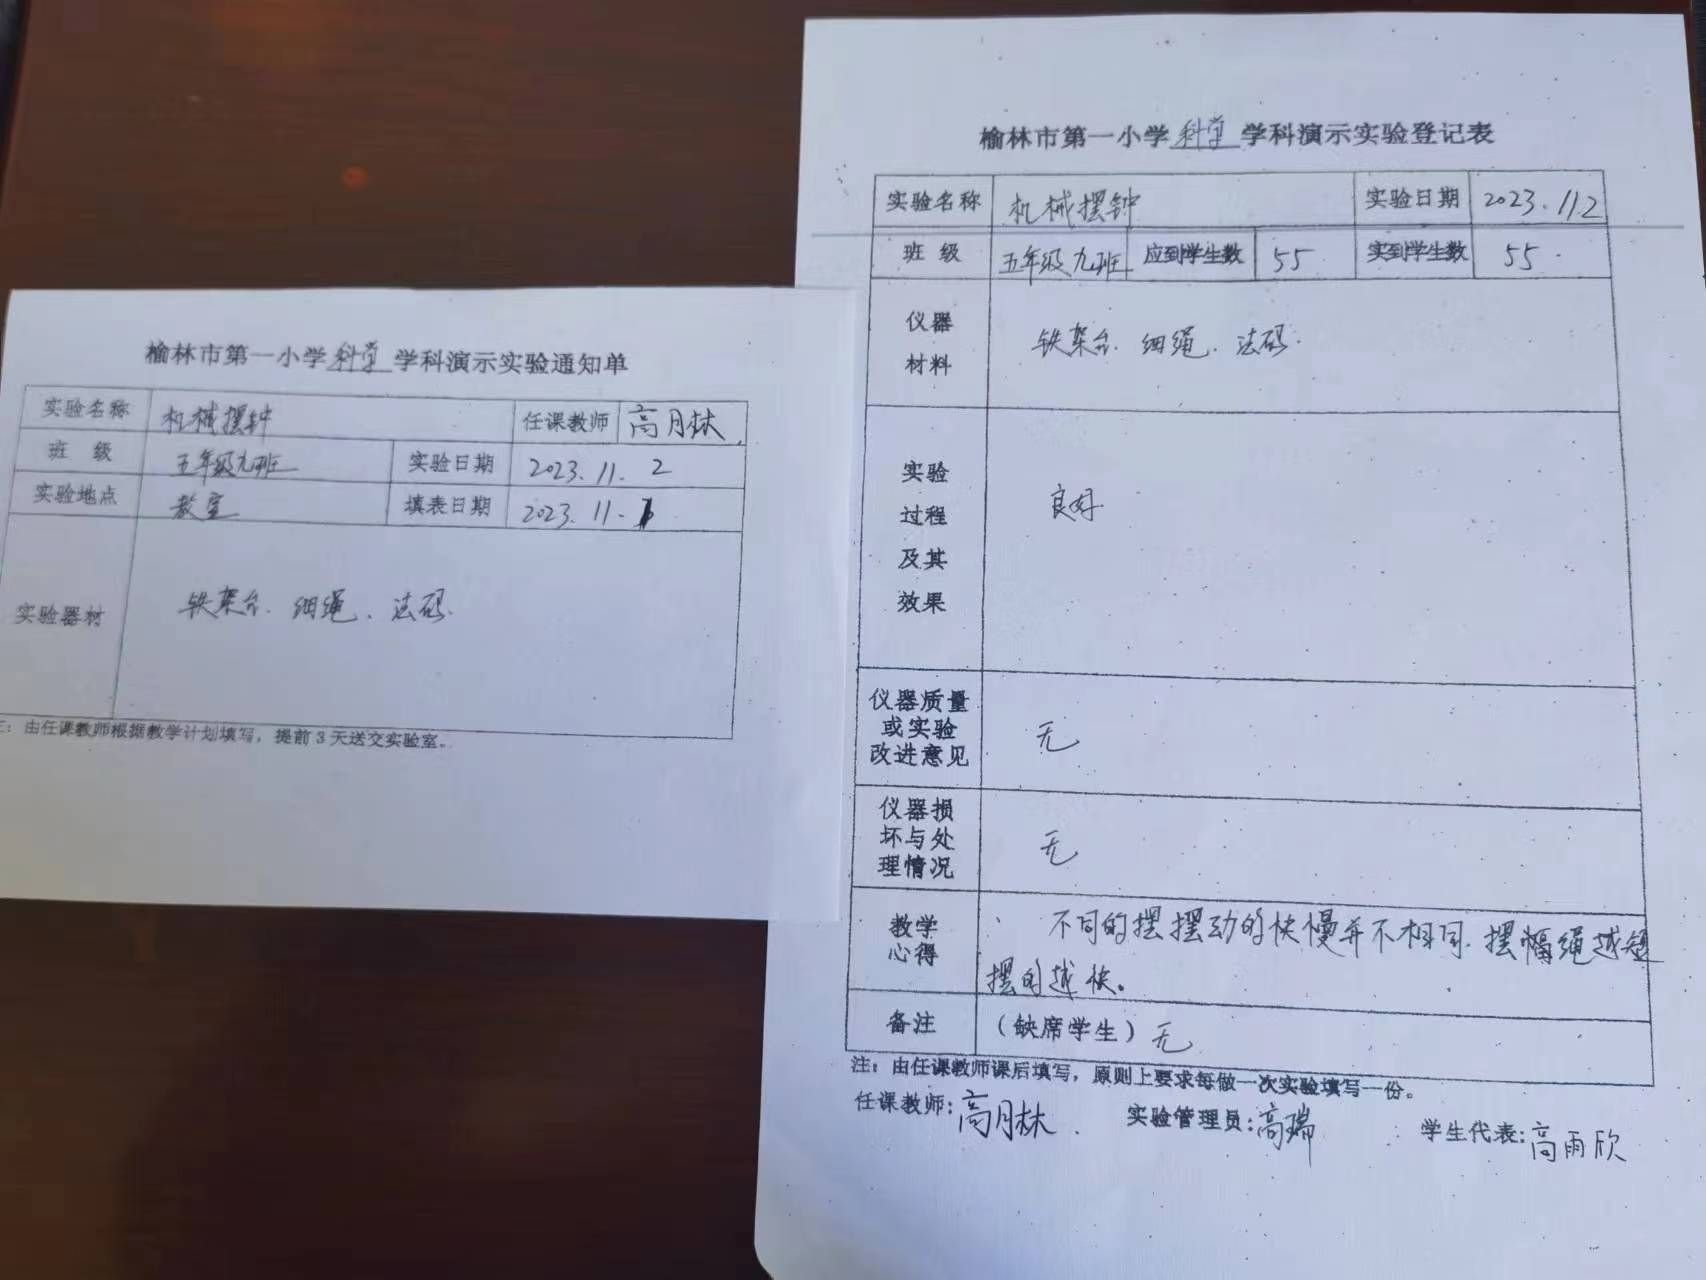 榆林市第一小学科学学科演示实验通知单
实验名称 机械摆钟 任课教师 高月林
班 级 五年级九班 实验日期 2023.11.2
实验地点 教室 填表日期 2023.11.
实验器材 铁架台、细绳、法码.
注：由任课教师根据教学计划填写，提前3天送交实验室。
榆林市第一小学科学学科演示实验登记表
实验名称 机械摆钟 实验日期 2023.11.2
班 级 五年级九班 应到学生数 55 实到学生数 55.
仪器
材料
铁架台、细绳、法码.
实验
过程
及其
效果
良好
仪器质量
或实验
改进意见
无
仪器损
坏与处
理情况
无
教学
心得
不同的摆摆动的快慢并不相同.摆幅绳越短
摆的越快。
备注 （缺席学生）无
注：由任课教师课后填写，原则上要求每做一次实验填写一份。
任课教师:高月林. 实验管理员:高瑞 学生代表:高雨欣